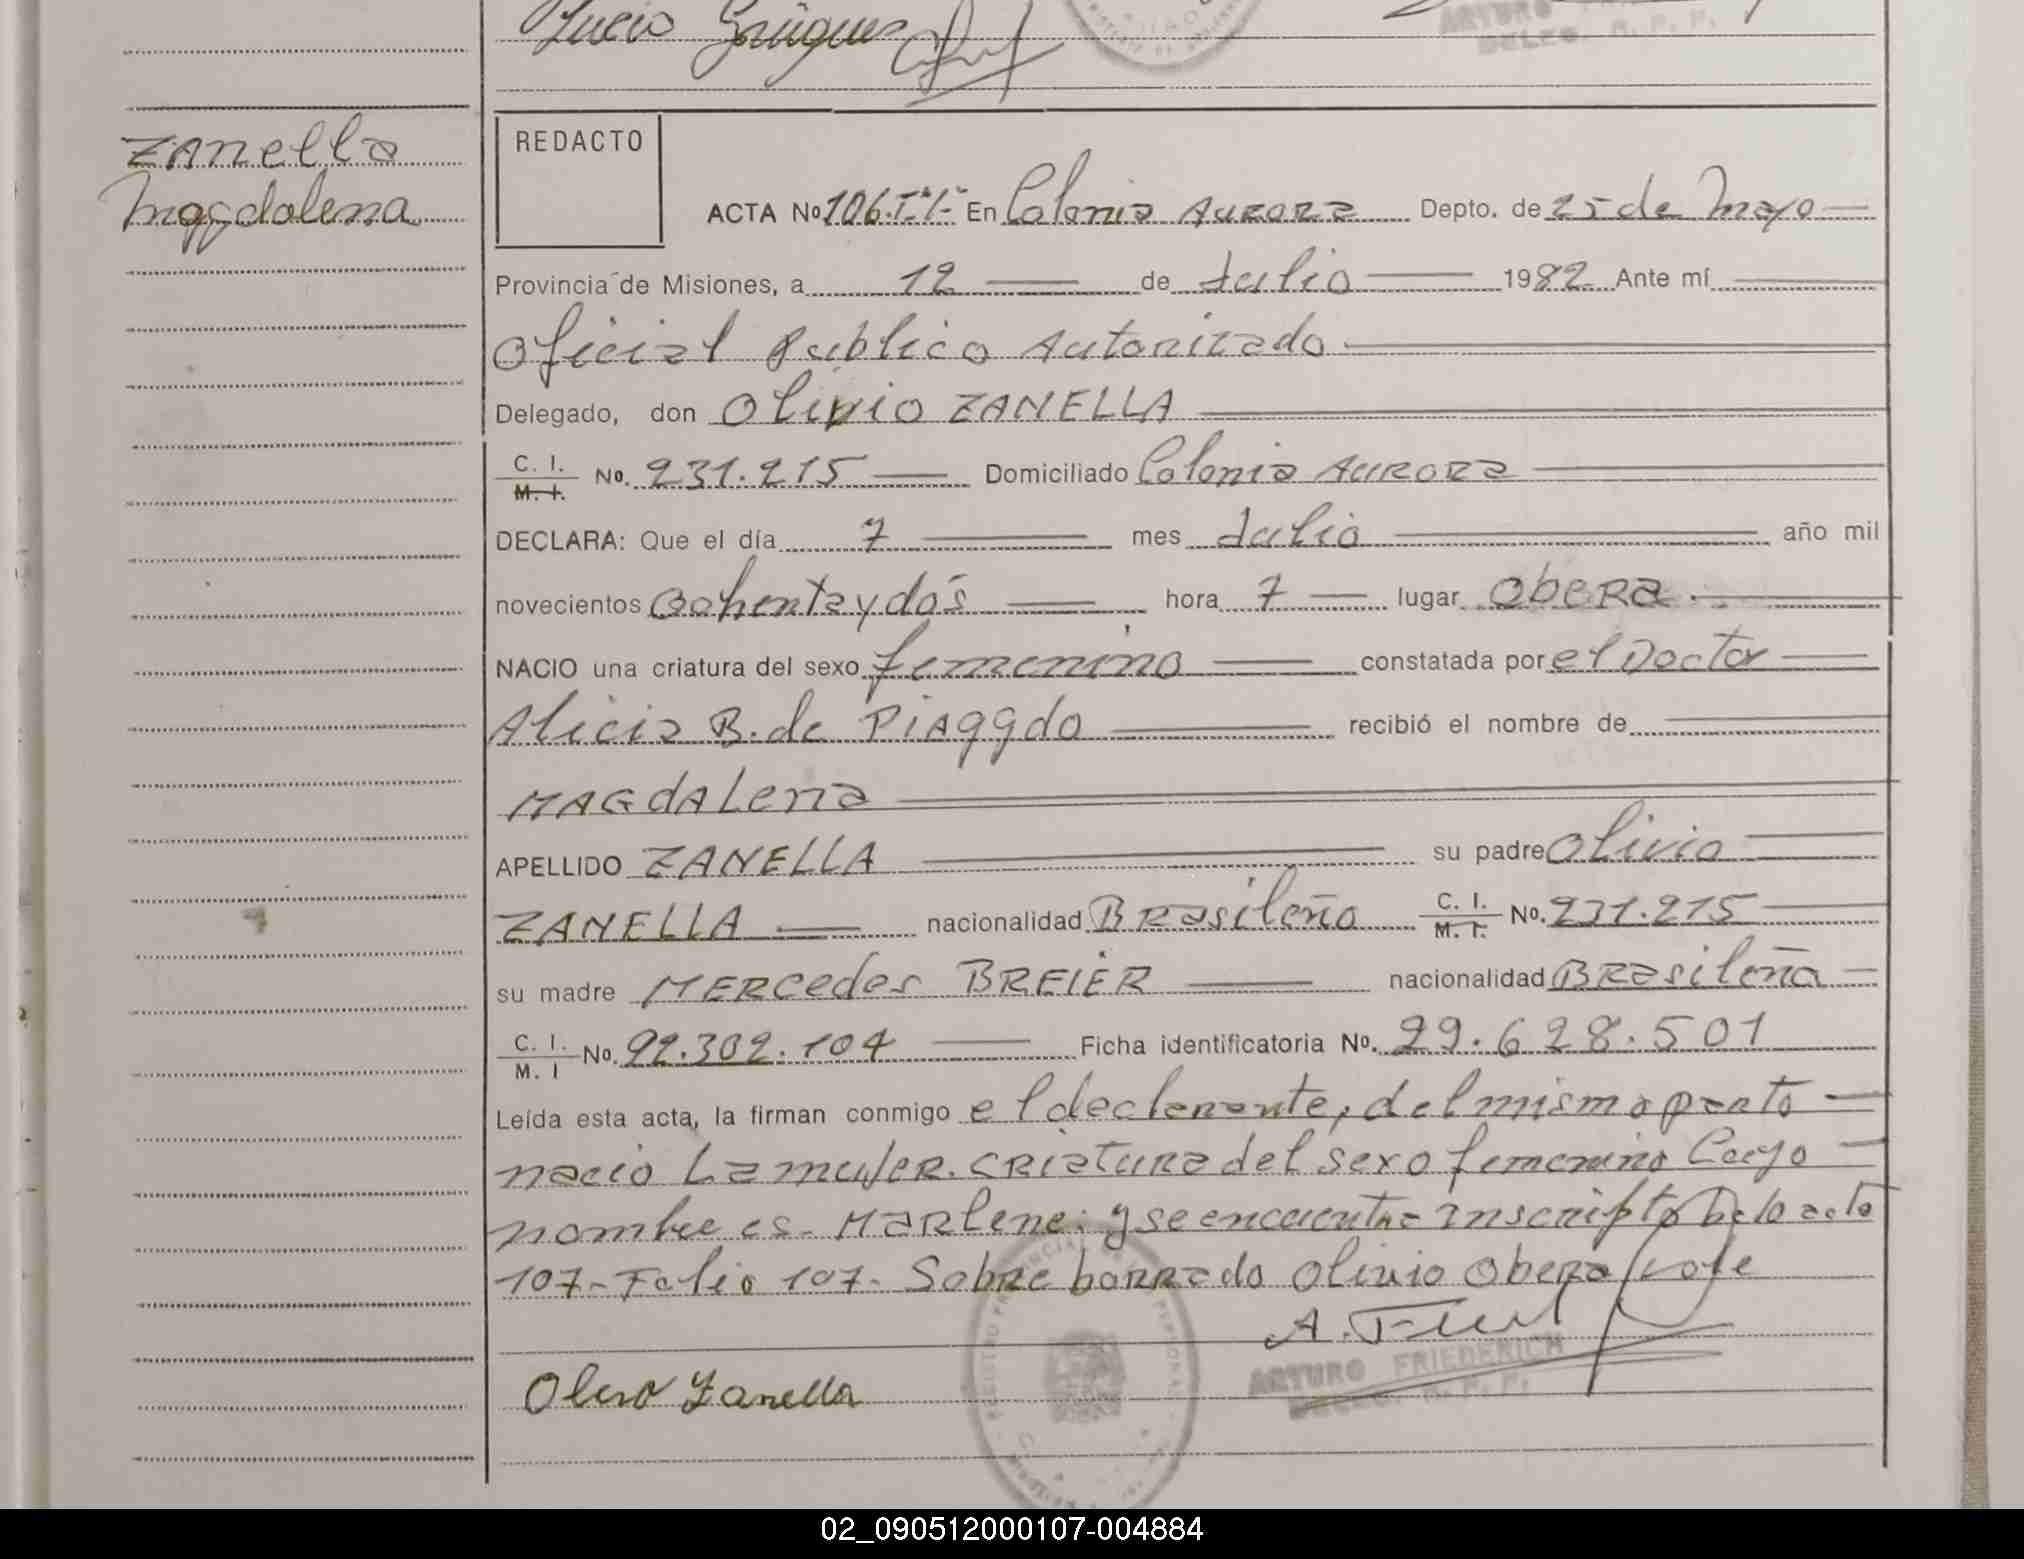 ARTURO
DELEG. R. P. P.
Zanella
Magdalena
REDACTO
ACTA No 106. En Colonia Aurora Depto. de 25 de Mayo
Provincia de Misiones, a 12 de Julio 1982 Ante mí
Oficial Publico Autorizado
Delegado, don Olivio ZANELLA
C. I. M. I. No. 231.215 Domiciliado Colonia Aurora
DECLARA: Que el día 7 mes Julio año mil
novecientos Oohentaydós hora 7 lugar Obera
NACIO una criatura del sexo femenino constatada por el Doctor
Alicia B. de PiAggdo recibió el nombre de
MAGdALena
APELLIDO ZANELLA su padre Olivio
ZANELLA nacionalidad BRasileño C. I. M. I. No. 231.215
su madre MERCedes BREIER nacionalidad BRasileña
C. I. M. I No. 92.302.104 Ficha identificatoria No. 29.628.501
Leída esta acta, la firman conmigo el declarante, del mismo parto
nacio La muJeR. CRiatura del sexo femenino Cuyo
nombre es - MaRlene; y se encuentra inscripto acta
107 - Folio 107 - Sobre borrado Olivio Obera Vale
ARTURO FRIEDERICH
DELEG. R. P. P.
Olivo Zanella
02_090512000107-004884